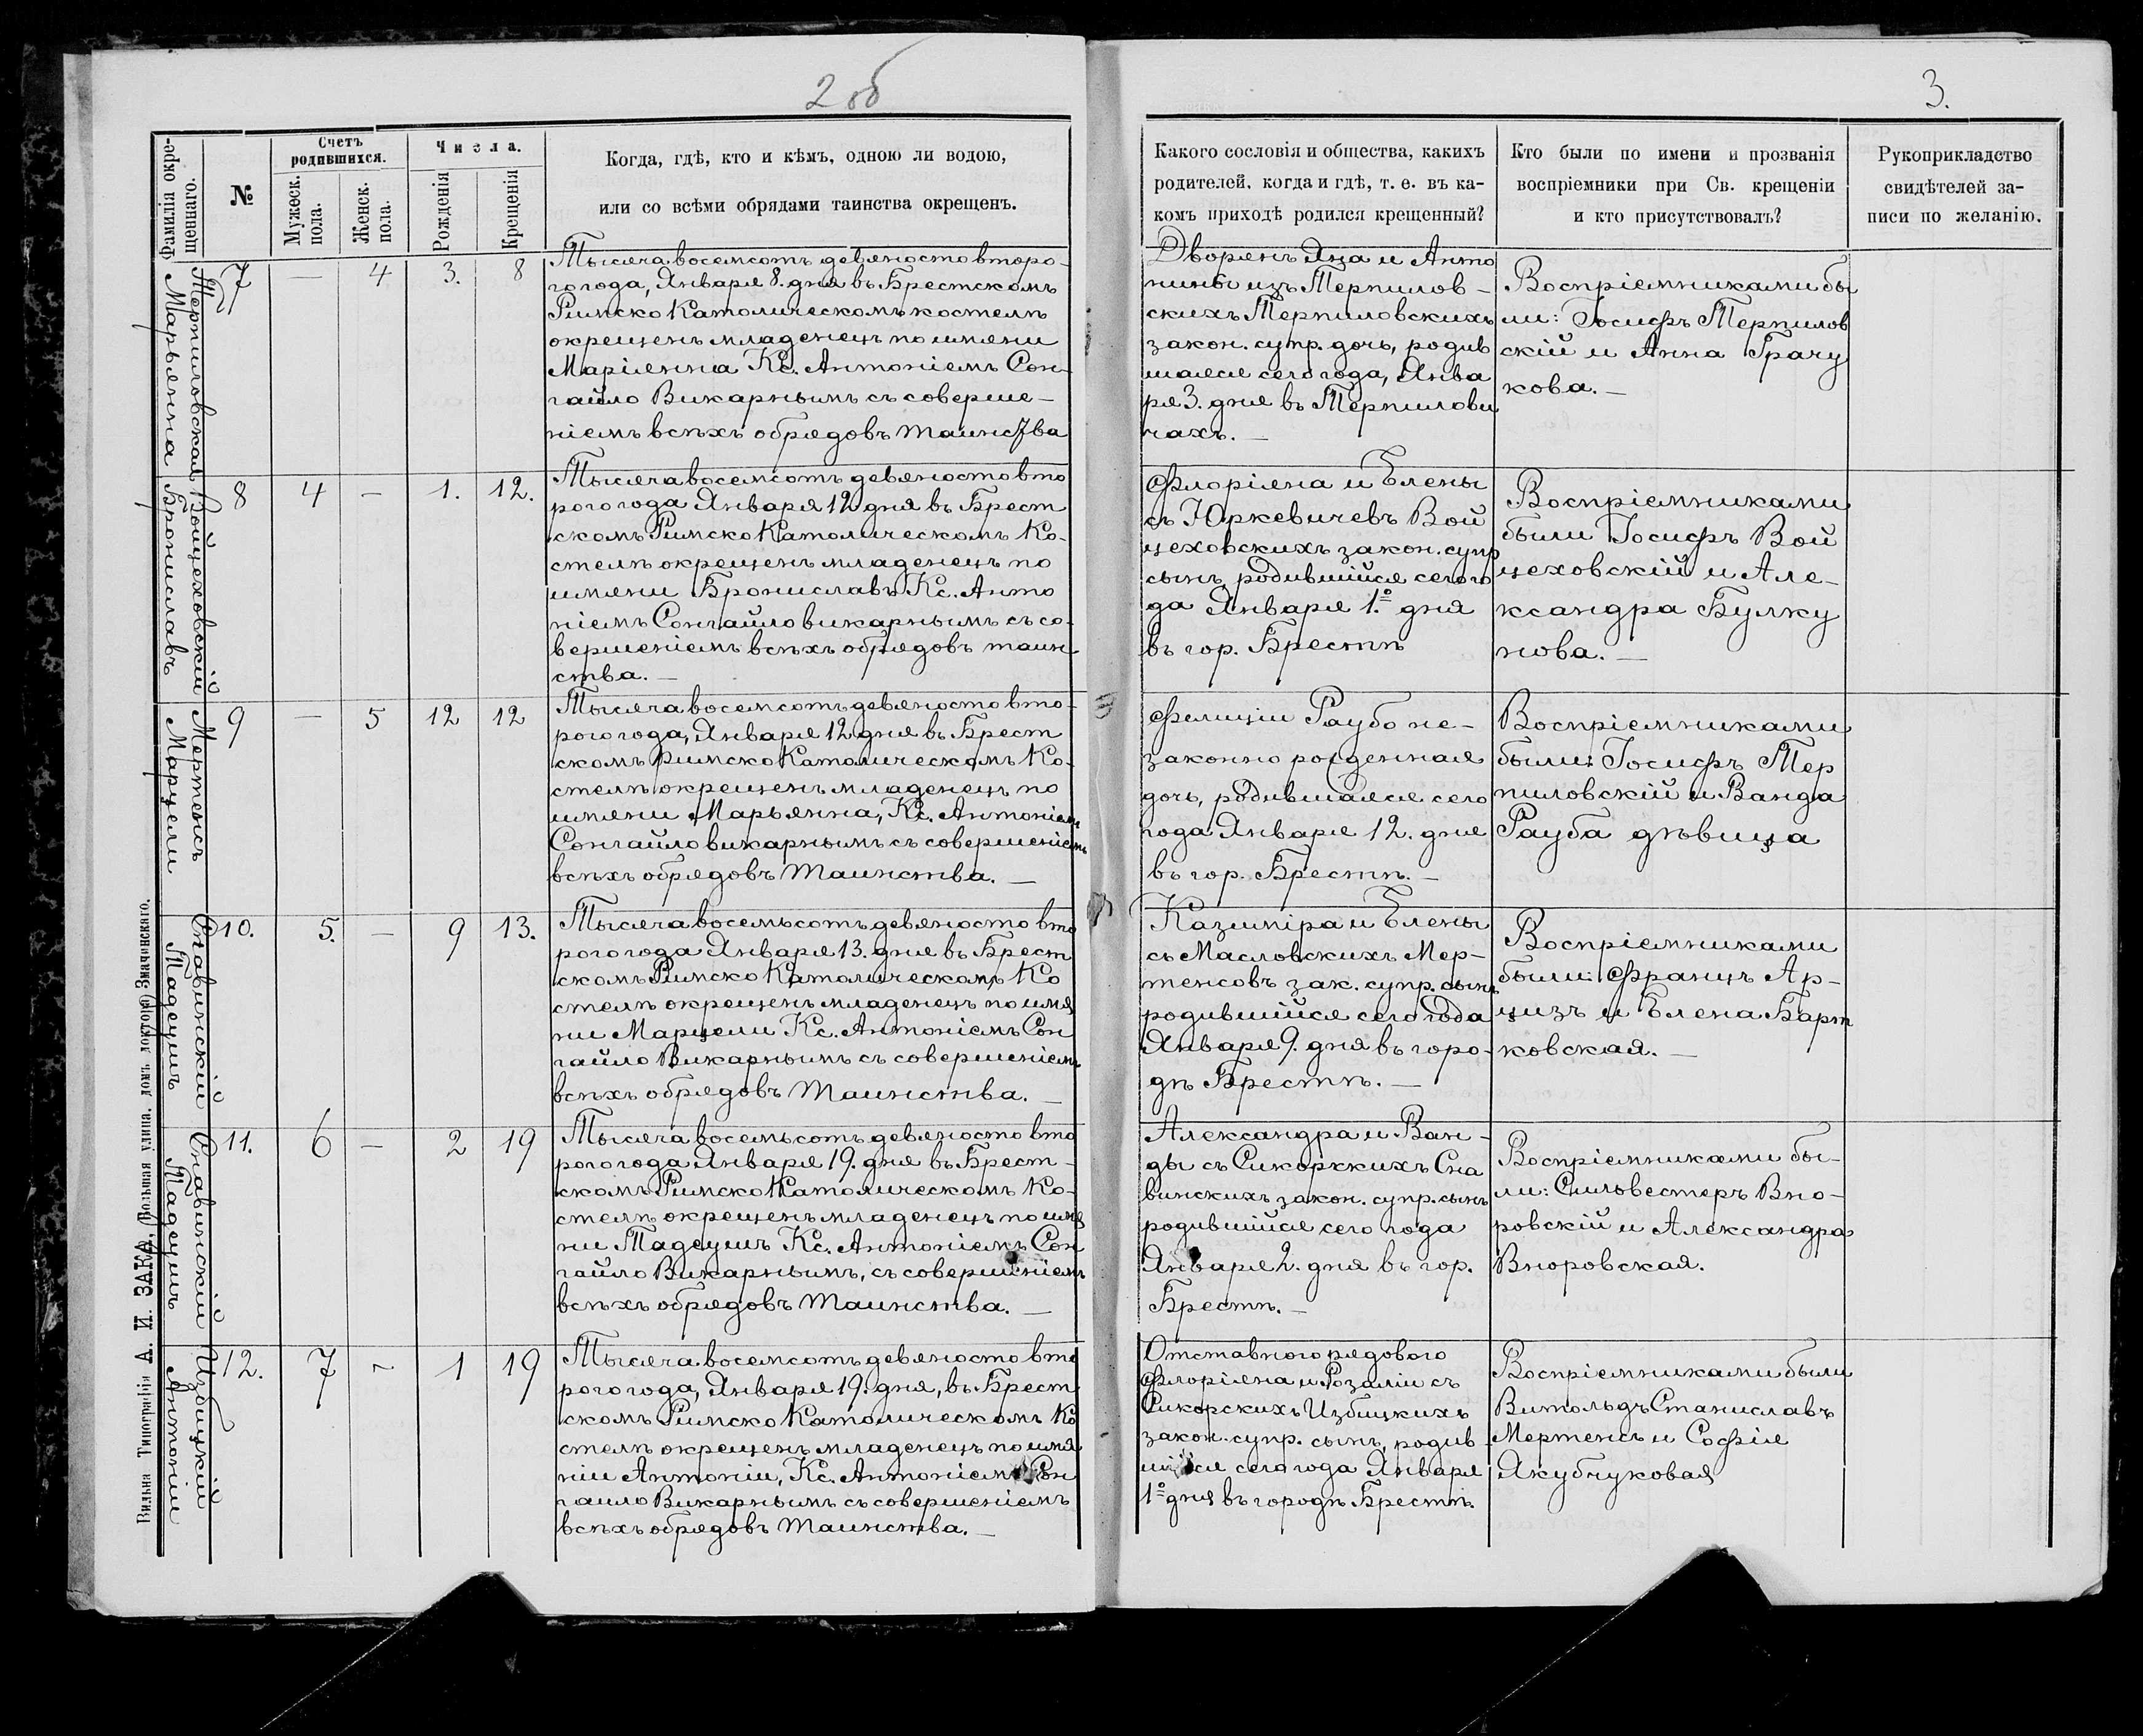 2 об
3.
Фамилія окре-
щеннаго.
№
Счетъ
родившихся.
Мужеск.
пола.
Женск.
пола.
Числа.
Рожденія
Крещенія
Когда, гдѣ, кто и кѣмъ, одною ли водою,
или со всѣми обрядами таинства окрещенъ.
Какого сословія и общества, какихъ
родителей, когда и гдѣ, т. е. въ ка-
комъ приходѣ родился крещенный?
Кто были по имени и прозванія
воспріемники при Св. крещеніи
и кто присутствовалъ?
Рукоприкладство
свидѣтелей за-
писи по желанію.
Терпиловская
Марьянна
7 — 4 3. 8
Тысяча восемсотъ девяносто второ-
го года, Января 8. дня въ Брестскомъ
Римско Католическомъ костелѣ
окрещенъ младенецъ по имени
Маріянна Кс. Антоніемъ Сон-
гайло Викарнымъ съ соверше-
ніемъ всѣхъ обрядовъ таинства
Дворянъ Яна и Анто
нины изъ Терпилов-
скихъ Терпиловскихъ
закон. супр. дочь, родив
шаяся сего года, Янва
ря 3. дня въ Терпилови
чахъ. —
Воспріемниками бы
ли: Іосифъ Терпилов
скій и Анна Грачу
кова. —
Войцеховскій
Брониславъ
8 4 — 1. 12.
Тысяча восемсотъ девяносто вто
рого года Января 12 дня въ Брест
скомъ Римско Католическомъ Ко-
стелѣ окрещенъ младенецъ по
имени Брониславъ Кс. Анто
ніемъ Сонгайло викарнымъ съ со-
вершеніемъ всѣхъ обрядовъ таин-
ства. —
Флоріяна и Елены
съ Юркевичевъ Вой
цеховскихъ закон. супр
сынъ, родившійся сего го
да Января 1.º дня
въ гор. Брестѣ
Воспріемниками
были Іосифъ Вой
цеховскій и Але-
ксандра Булку
нова. —
Мертенсъ
Марцели
9 — 5 12 12
Тысяча восемсотъ девяносто вто-
рого года, Января 12 дня въ Брест
скомъ Римско Католическомъ Ко-
стелѣ окрещенъ младенецъ по
имени Марьянна, Кс. Антоніемъ
Сонгайло викарнымъ съ совершеніемъ
всѣхъ обрядовъ Таинства. —
Фелиціи Раубо не-
законно рожденная
дочь, родившаяся сего
года Января 12. дня
въ гор. Брестѣ. —
Воспріемниками
были: Іосифъ Тер
пиловскій и Ванда
Рауба дѣвица
Снавинскій
Тадеушъ
10. 5. — 9 13.
Тысяча восемьсотъ девяносто вто
рого года Января 13. дня въ Брест
скомъ Римско Католическомъ Ко
стелѣ окрещенъ младенецъ по имя
ни Марцели Кс. Антоніемъ Сон
гайло Викарнымъ съ совершеніемъ
всѣхъ обрядовъ Таинства. —
Казиміра и Елены
съ Масловскихъ Мер-
тенсовъ зак. супр. сынъ
родившійся сего года
Января 9. дня въ горо-
дѣ Брестѣ. —
Воспріемниками
были: Францъ Ар-
цизъ и Елена Барт
ковская. —
Снавинскій
Тадеушъ
11. 6 — 2 19
Тысяча восемьсотъ девяносто вто
рого года Января 19. дня въ Брест-
скомъ Римско Католическомъ Ко-
стелѣ окрещенъ младенецъ по имя
ни Тадеушъ Кс. Антоніемъ Сон
гайло Викарнымъ, съ совершеніемъ
всѣхъ обрядовъ Таинства. —
Александра и Ван-
ды съ Сикорккихъ Сна
винскихъ закон. супр. сынъ
родившійся сего года
Января 2. дня въ гор.
Брестѣ. —
Воспріемниками бы-
ли: Сильвестеръ Вно-
ровскій и Александра
Вноровская.
Избицкій
Антоній
12. 7 — 1 19
Тысяча восемсотъ девяносто вто
рого года, Января 19. дня, въ Брест
скомъ Римско Католическомъ Ко
стелѣ окрещенъ младенецъ по имя
ніи Антоніи, Кс. Антоніемъ Сон
гаило Викарнымъ съ совершеніемъ
всѣхъ обрядовъ Таинства. —
Отставного рядового
Флоріяна и Розаліи съ
Сикорскихъ Избицкихъ
закон. супр. сынъ, родив-
шійся сего года Января
1º дня въ городѣ Брестѣ.
Воспріемниками были
Витольдъ Станиславъ
Мертенсъ и Софія
Якубчуковая
Вильна Типографія А. И. ЗАКА, Большая улица, домъ доктора Змачинскаго.